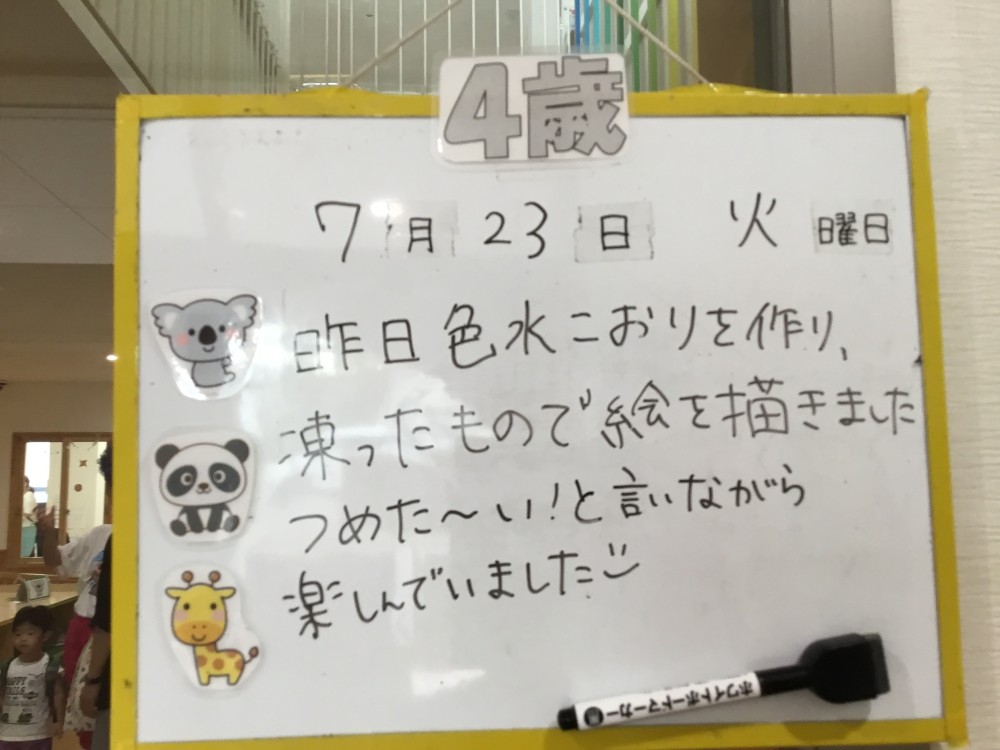 4歳
7月23日 火曜日
昨日色水こおりを作り、
凍ったもので絵を描きました
つめた〜い!と言いながら
楽しんでいました
ホワイトボードマーカー